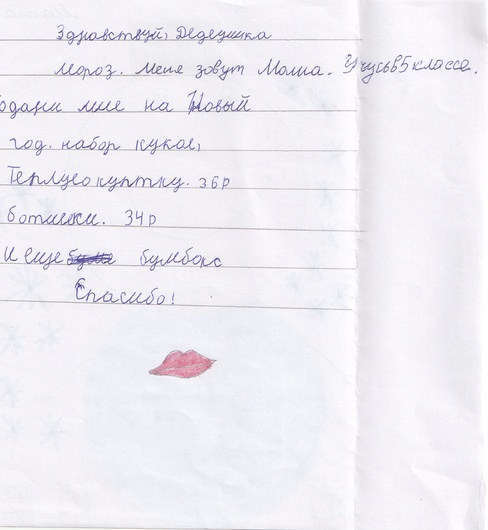 Здравствуй, Дедушка
Мороз. Меня зовут Маша. Учусь в 5 классе.
одари мне на Новый
год. набор кукол,
Теплую куртку. 36р
ботинки. 34р
и еще бумбокс
Спасибо!